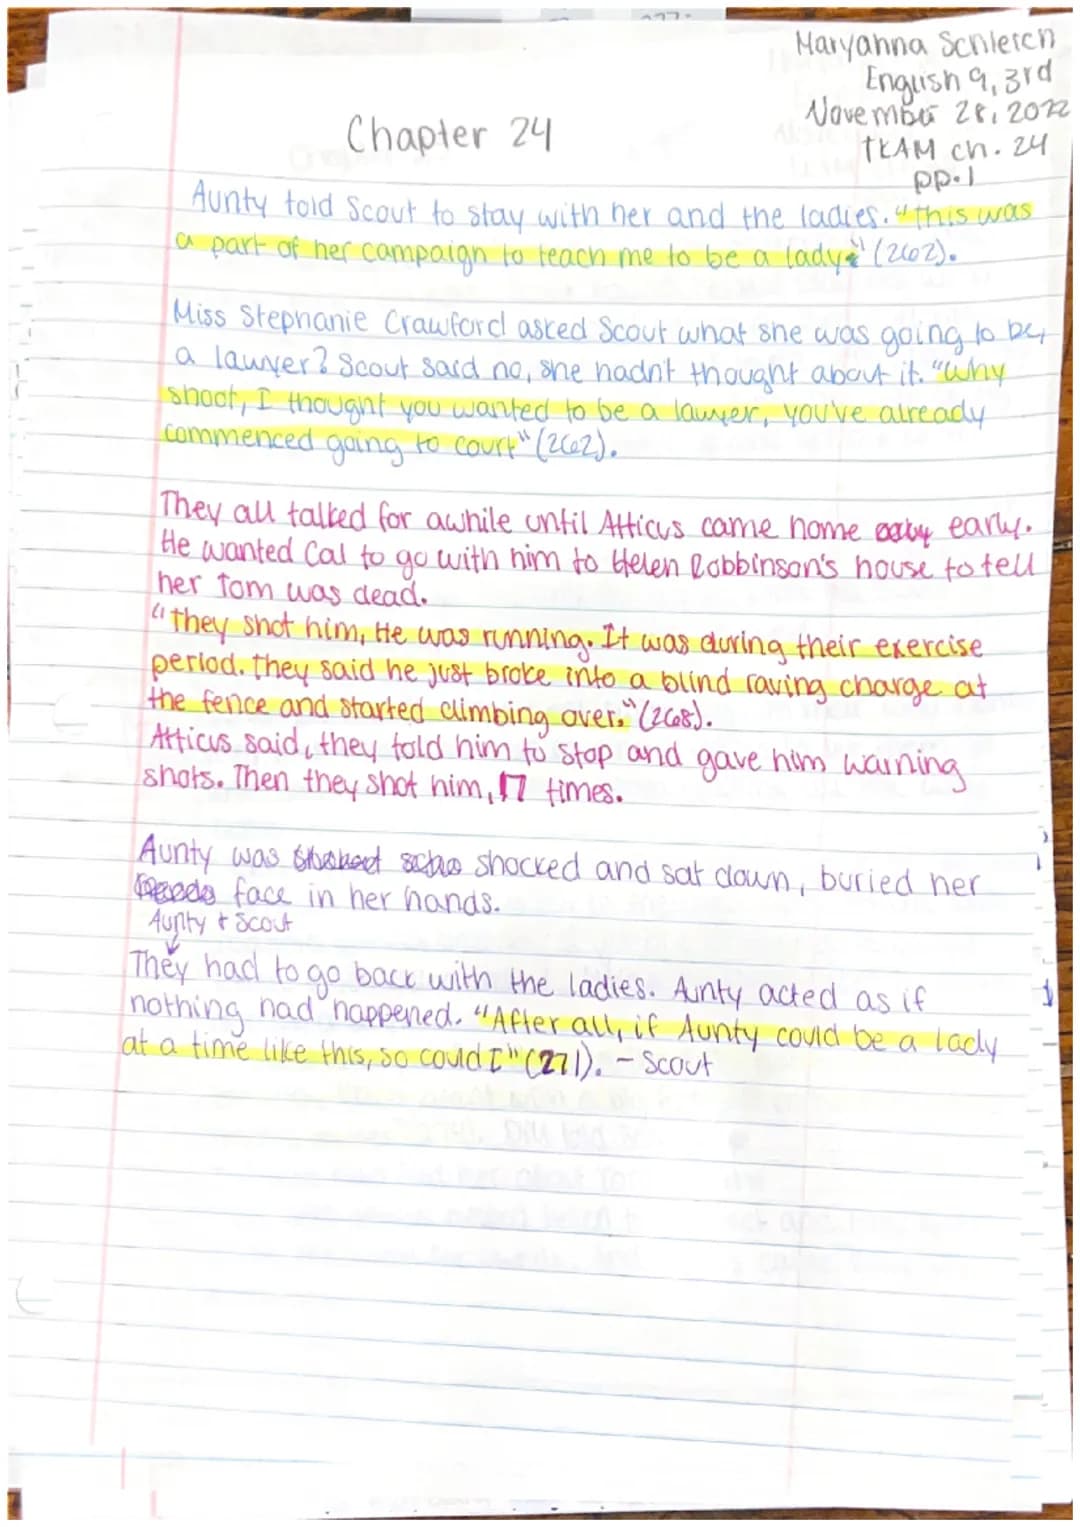 Maryanna Schleich
English 9, 3rd
November 28, 2022
TKAM ch. 24
pp. 1
Chapter 24
Aunty told Scout to stay with her and the ladies. "This was
a part of her campaign to teach me to be a lady" (262).
Miss Stephanie Crawford asked Scout what she was going to be,
a lawyer? Scout said no, she hadn't thought about it. "Why
shoot, I thought you wanted to be a lawyer, you've already
commenced going to court" (262).
They all talked for awhile until Atticus came home early.
He wanted Cal to go with him to Helen Robbinson's house to tell
her Tom was dead.
"They shot him, He was running. It was during their exercise
period. They said he just broke into a blind raving charge at
the fence and started climbing over." (268).
Atticus said, they told him to stop and gave him warning
shots. Then they shot him, 17 times.
Aunty was shocked and sat down, buried her
face in her hands.
Aunty + Scout
They had to go back with the ladies. Aunty acted as if
nothing had happened. "After all, if Aunty could be a lady
at a time like this, so could I" (271). - Scout